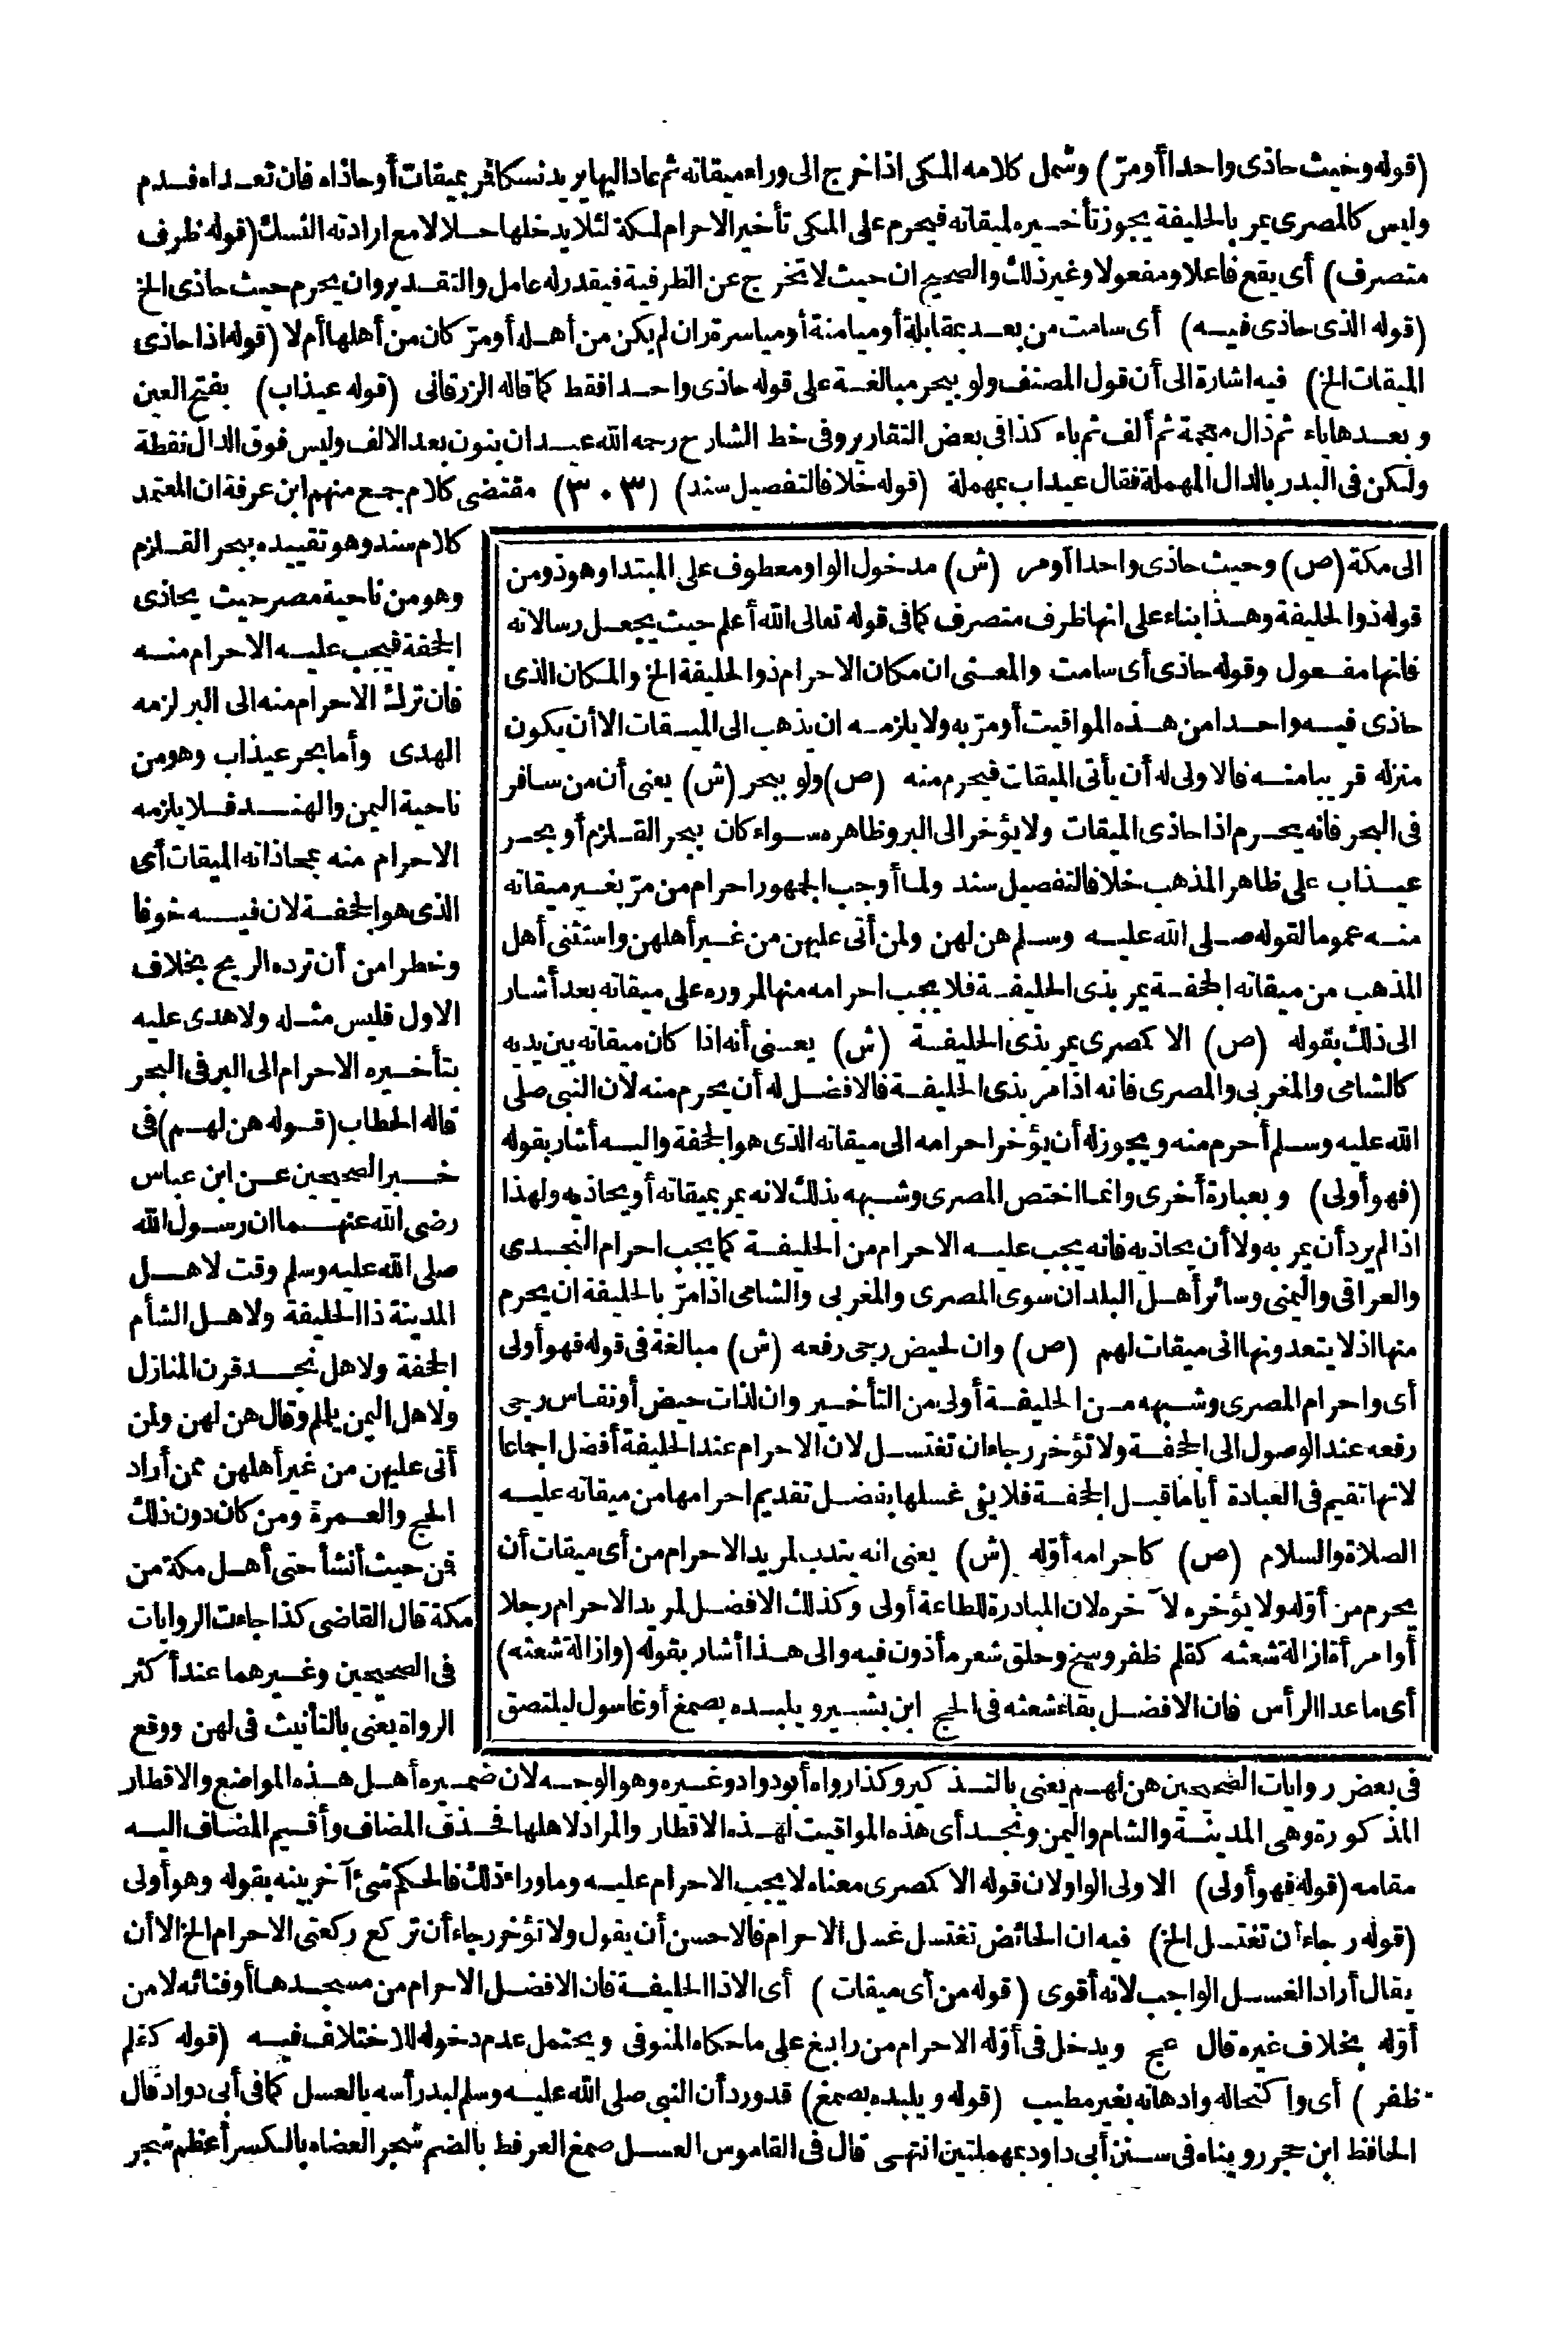 (قوله وحيث حاذى واحدا أو مرّ) وشمل كلامه المكى اذا خرج الى وراء ميقاته ثم عاد اليها يريد نسكا فمر بميقات أو حاذاه فان تعداه فدم
وليس كالمصرى يمر بالحليفة يجوز تأخيره لميقاته فيحرم على المكى تأخير الاحرام لمكة لئلا يدخلها حلالا مع ارادته النسك (قوله ظرف
متصرف) أى يقع فاعلا ومفعولا وغير ذلك والصحيح ان حيث لا تخرج عن الظرفية فيقدر له عامل والتقدير وان يحرم حيث حاذى الخ
(قوله الذى حاذى فيه) أى سامت من بعد بمقابلة أو ميامنة أو مياسرة ان لم يكن من أهله أو مرّ كان من أهلها أم لا (قوله اذا حاذى
الميقات الخ) فيه اشارة الى أن قول المصنف ولو ببحر مبالغة على قوله حاذى واحدا فقط كما قاله الزرقانى (قوله عيذاب) بفتح العين
وبعدها ياء ثم ذال معجمة ثم ألف ثم باء كذا فى بعض التقارير وفى خط الشارح رحمه الله عيدان بنون بعد الالف وليس فوق الدال نقطة
ولكن فى البدر بالدال المهملة فقال عيداب بمهملة (قوله خلافا لتفصيل سند) (٣٠٣) مقتضى كلام جمع منهم ابن عرفة ان المعتمد
كلام سند وهو تقييده ببحر القلزم
وهو من ناحية مصر حيث يحاذى
الجحفة فيجب عليه الاحرام منه
فان ترك الاحرام منه الى البر لزمه
الهدى وأما بحر عيذاب وهو من
ناحية اليمن والهند فلا يلزمه
الاحرام منه بمحاذاته الميقات أى
الذى هو الجحفة لان فيه خوفا
وخطرا من أن ترده الريح بخلاف
الاول فليس مثله ولا هدى عليه
بتأخيره الاحرام الى البر فى البحر
قاله الحطاب (قوله هن لهم) فى
خبر الصحيحين عن ابن عباس
رضى الله عنهما ان رسول الله
صلى الله عليه وسلم وقت لاهل
المدينة ذا الحليفة ولاهل الشأم
الجحفة ولاهل نجد قرن المنازل
ولاهل اليمن يلملم وقال هن لهن ولمن
أتى عليهن من غير أهلهن ممن أراد
الحج والعمرة ومن كان دون ذلك
فمن حيث أنشأ حتى أهل مكة من
مكة قال القاضى كذا جاءت الروايات
فى الصحيحين وغيرهما عند أكثر
الرواة يعنى بالتأنيث فى لهن ووقع
الى مكة (ص) وحيث حاذى واحدا أو مر (ش) مدخول الواو معطوف على المبتدا وهو ذو من
قوله ذو الحليفة وهذا بناء على انها ظرف متصرف كما فى قوله تعالى الله أعلم حيث يجعل رسالاته
فانها مفعول وقوله حاذى أى سامت والمعنى ان مكان الاحرام ذو الحليفة الخ والمكان الذى
حاذى فيه واحدا من هذه المواقيت أو مرّ به ولا يلزمه ان يذهب الى الميقات الا أن يكون
منزله قريبا منه فالاولى له أن يأتى الميقات فيحرم منه (ص) ولو ببحر (ش) يعنى أن من سافر
فى البحر فانه يحرم اذا حاذى الميقات ولا يؤخر الى البر وظاهره سواء كان ببحر القلزم أو بحر
عيذاب على ظاهر المذهب خلافا لتفصيل سند ولما أوجب الجمهور احرام من مرّ بغير ميقاته
منه عموما لقوله صلى الله عليه وسلم هن لهن ولمن أتى عليهن من غير أهلهن واستثنى أهل
المذهب من ميقاته الجحفة يمر بذى الحليفة فلا يجب احرامه منها لمروره على ميقاته بعد أشار
الى ذلك بقوله (ص) الا كمصرى يمر بذى الحليفة (ش) يعنى أنه اذا كان ميقاته بين يديه
كالشامى والمغربى والمصرى فانه اذا مر بذى الحليفة فالافضل له أن يحرم منه لان النبى صلى
الله عليه وسلم أحرم منه ويجوز له أن يؤخر احرامه الى ميقاته الذى هو الجحفة واليه أشار بقوله
(فهو أولى) وبعبارة أخرى وانما اختص المصرى وشبهه بذلك لانه يمر بميقاته أو يحاذيه ولهذا
اذا لم يرد أن يمر به ولا أن يحاذيه فانه يجب عليه الاحرام من الحليفة كما يجب احرام النجدى
والعراقى واليمنى وسائر أهل البلدان سوى المصرى والمغربى والشامى اذا مرّ بالحليفة ان يحرم
منها اذ لا يتعدونها الى ميقات لهم (ص) وان لحيض رجى رفعه (ش) مبالغة فى قوله فهو أولى
أى واحرام المصرى وشبهه من الحليفة أولى من التأخير وان لذات حيض أو نفاس رجى
رفعه عند الوصول الى الجحفة ولا تؤخر رجاء ان تغتسل لان الاحرام عند الحليفة أفضل اجماعا
لانها تقيم فى العبادة أياما قبل الجحفة فلا يفى غسلها بفضل تقديم احرامها من ميقاته عليه
الصلاة والسلام (ص) كاحرامه أوّله (ش) يعنى انه يندب لمريد الاحرام من أى ميقات أن
يحرم من أوّله ولا يؤخره لآخره لان المبادرة للطاعة أولى وكذلك الافضل لمريد الاحرام رجلا
أو امرأة ازالة شعثه كقلم ظفر وسخ وحلق شعر مأذون فيه والى هذا أشار بقوله (وازالة شعثه)
أى ما عدا الرأس فان الافضل بقاء شعثه فى الحج ابن بشير ويلبده بصمغ أو غاسول ليلتصق
فى بعض روايات الصحيحين هن لهم يعنى بالتذكير وكذا رواه أبو دواد وغيره وهو الوجه لان ضميره أهل هذه المواضع والاقطار
المذكورة وهى المدينة والشام واليمن ونجد أى هذه المواقيت لهذه الاقطار والمراد لاهلها فحذف المضاف وأقيم المضاف اليه
مقامه (قوله فهو أولى) الاولى الواو لان قوله الا كمصرى معناه لا يجب الاحرام عليه وما وراء ذلك فالحكم شىء آخر بينه بقوله وهو أولى
(قوله رجاء أن تغتسل الخ) فيه ان الحائض تغتسل غسل الاحرام فالاحسن أن يقول ولا تؤخر رجاء أن تركع ركعتى الاحرام الخ الا أن
يقال أراد الغسل الواجب لانه أقوى (قوله من أى ميقات) أى الا ذا الحليفة فان الافضل الاحرام من مسجدها أو فنائه لا من
أوّله بخلاف غيره قال عج ويدخل فى أوّله الاحرام من رابغ على ما حكاه المنوفى ويحتمل عدم دخوله للاختلاف فيه (قوله كقلم
ظفر) أى واكتحاله وادهانه بغير مطيب (قوله ويلبده بصمغ) قد ورد أن النبى صلى الله عليه وسلم لبد رأسه بالعسل كما فى أبى دواد قال
الحافظ ابن حجر رويناه فى سنن أبى داود بمهملتين انتهى قال فى القاموس العسل صمغ العرفط بالضم شجر العضاه بالكسر أعظم شجر